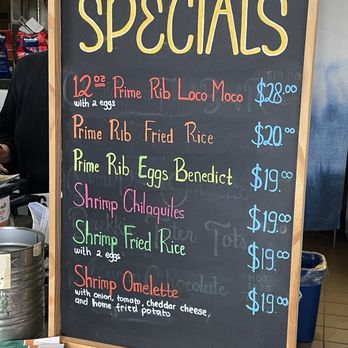 SPECIALS
12oz Prime Rib Loco Moco $28.00
with 2 eggs
Prime Rib Fried Rice $20.00
Prime Rib Eggs Benedict $19.00
Shrimp Chilaquiles $19.00
Shrimp Fried Rice $19.00
with 2 eggs
Shrimp Omelette $19.00
with onion, tomato, cheddar cheese,
and home fried potato